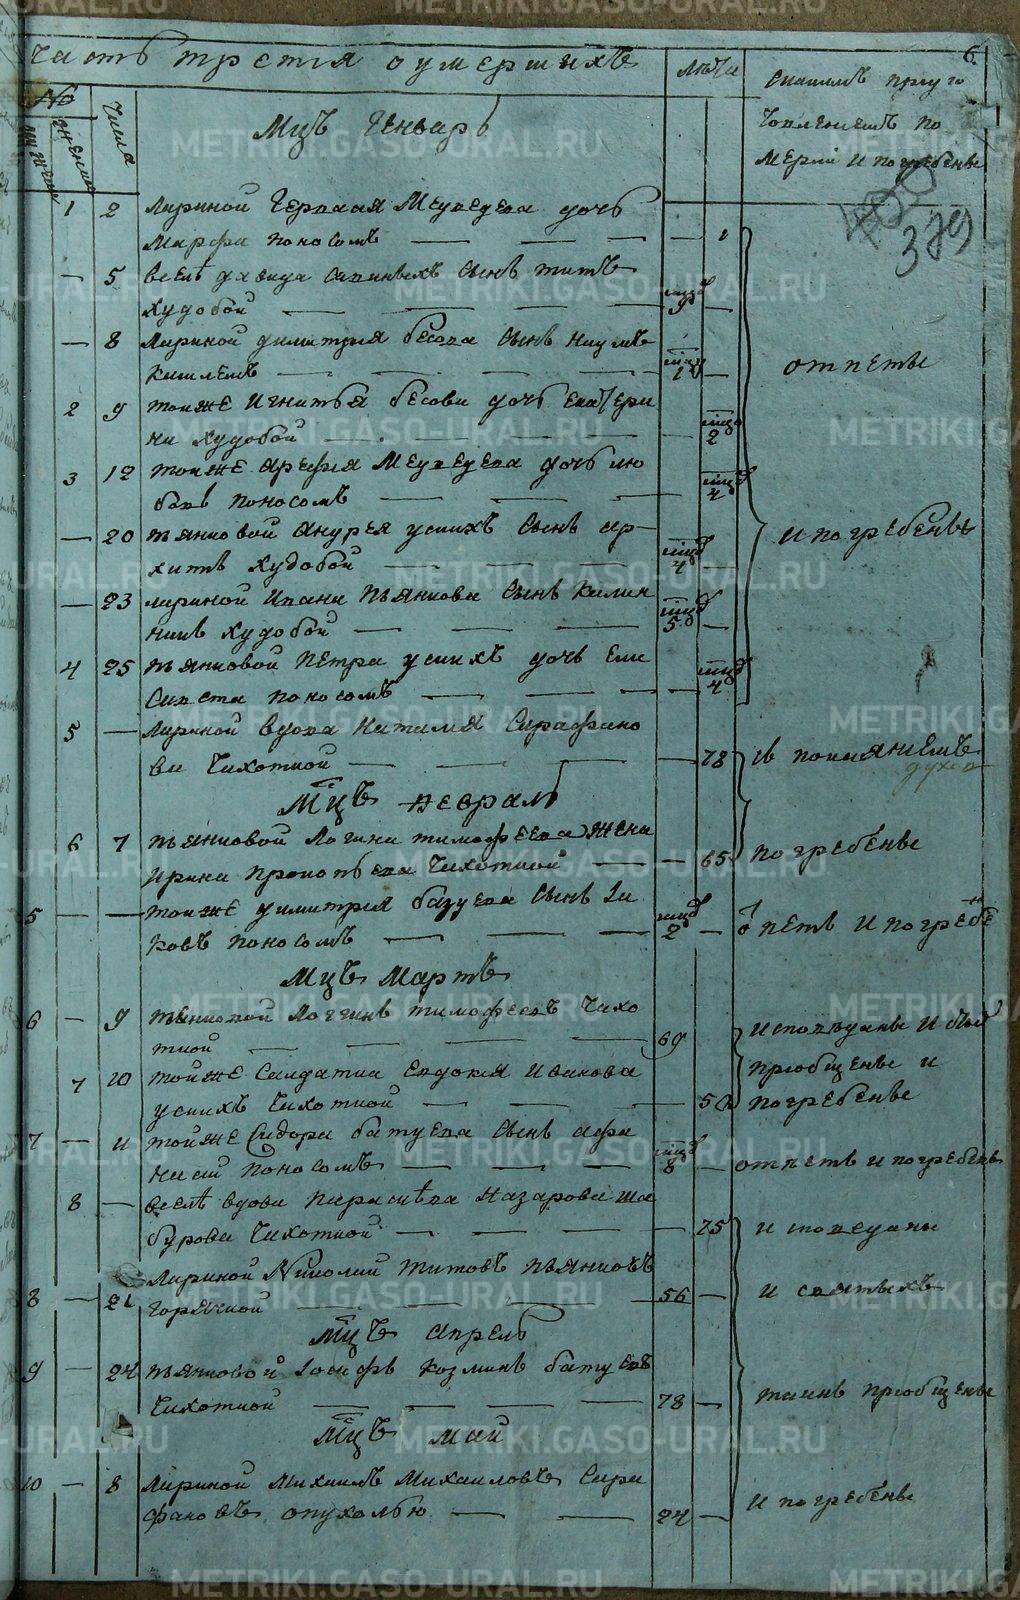 часть третія о умершихъ
лѣта
6.
№
мужеска
женска
числа
Мцъ Генварь
Съ какимъ пріуго
товленіемъ по
мерли и погребены
379
1 2 Лариной Герасима Медведева дочь
Марфа поносомъ 1
5 веслѣ давида сапиныхъ сынъ титъ
худобой мцъ 9
8 Лариной димитрия бѣсова сынъ наумъ
кашлемъ 1
отпеты
2 9 тойже Игнатья бѣсова дочь екатери
на худобой 2
3 12 тойже Арефия Медведева дочь лю
бавь поносомъ 4
20 пьянковой Андрея ускихъ сынъ ар
хипъ худобой 4
и погребены
23 лариной Ивана Пьянкова сынъ калин
никъ худобой 5
4 25 пьянковой Петра ускихъ дочь ели
савета поносомъ 4
5 Лариной вдова Наталия Сарафано
ва чихотной 78
съ покаяниемъ
духов
Мцъ февраль
6 7 пьянковой Логина тимофеева жена
Ирина Прокопьева чихотной 65
погребены
5 тойже димитрия батуева сынъ Іа
ковъ поносомъ 2
отпетъ и погребе
Мцъ Мартъ
6 9 пьянковой Логгинъ тимофеевъ чихо
тной 69
исповѣданы и
приобщены и
7 10 тойже Салдатка Евдокия Иванова
ускихъ чихотной
погребены
7 11 тойже Сидора батуева сынъ афа
насий поносомъ 8
отпетъ и погребенъ
8 веслѣ вдова Параскева Назарова ша
бурова чихотной 75
и споведаны
Лариной Николай титовъ пьянковъ
8 21 горячкой 56
и святыхъ
Мцъ апрель
9 24 пьянковой Іосифъ козминъ батуевъ
чихотной 78
таинъ приобщены
Мцъ май
10 8 Лариной Михаилъ Михаиловъ Сара
фановъ опухолью 24
и погребены
METRIKI.GASO-URAL.RU